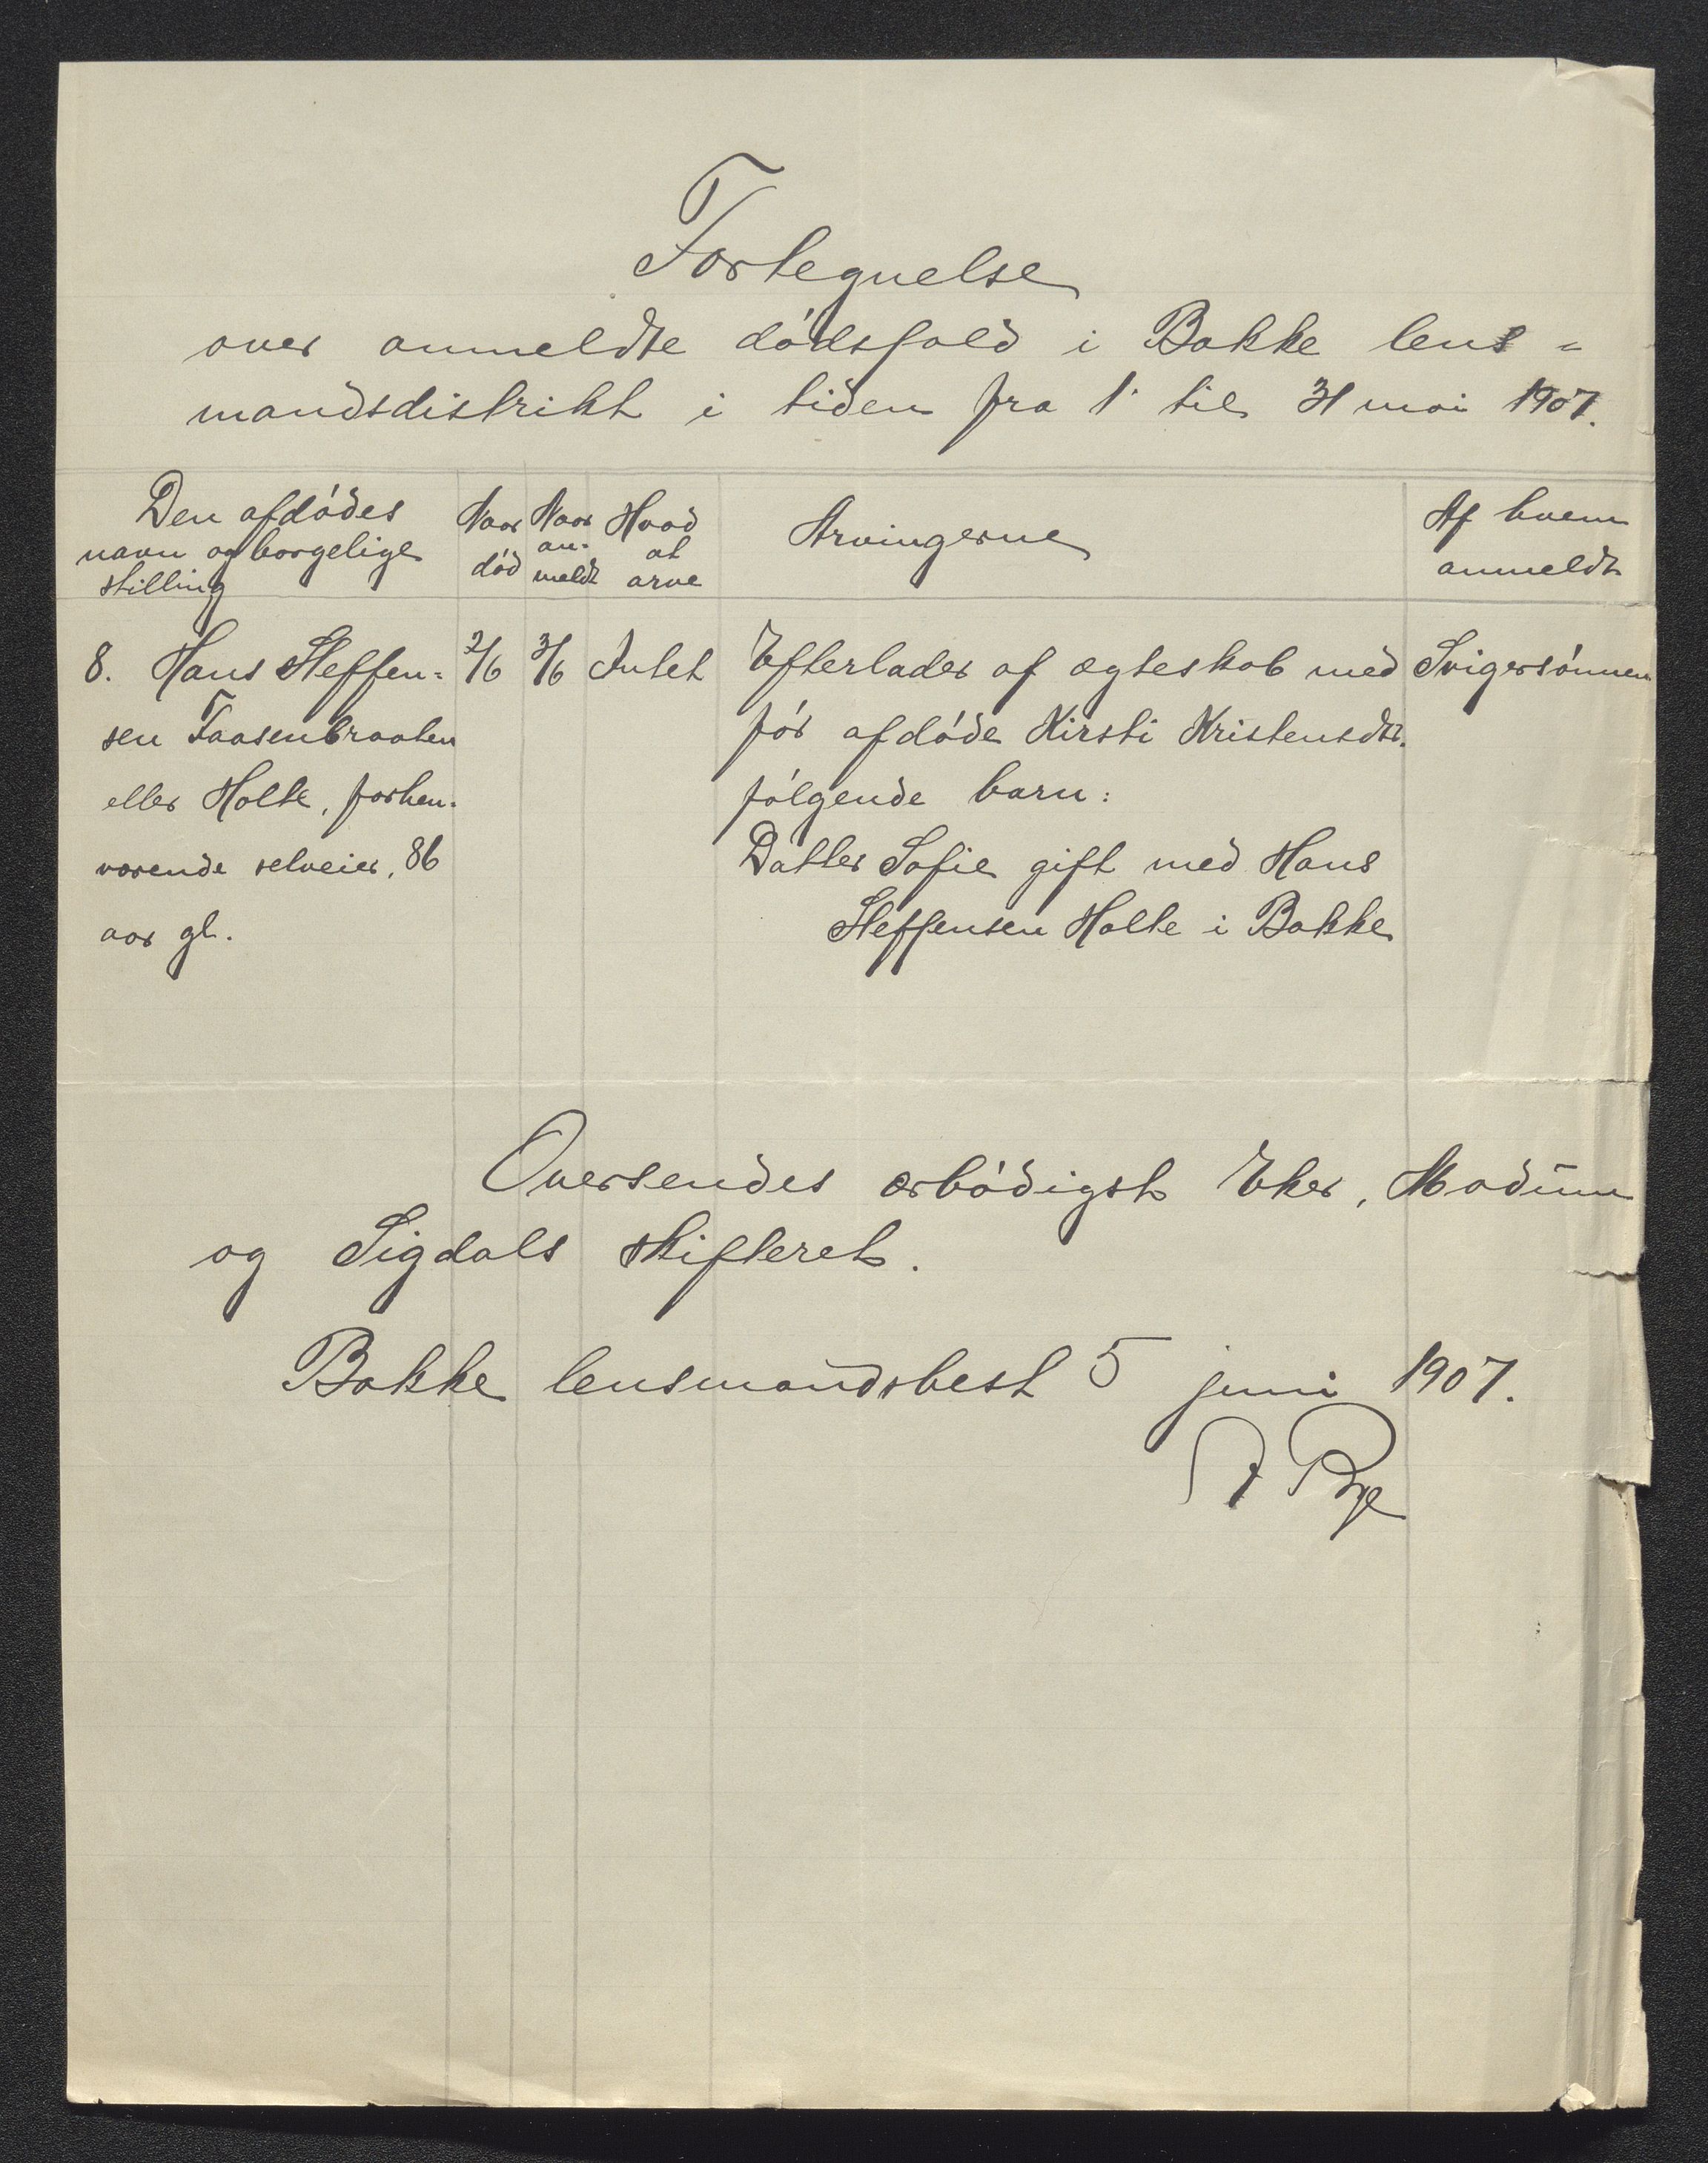 Fortegnelse
over anmeldte dødsfald i Bakke lens=
mandsdistrikt i tiden fra 1 til 31 mai 1907.
Den afdødes navn og borgelige stilling
Naar død
Naar an-meldt
Hvad at arve
Arvingerne
Af hvem anmeldt
8. Hans Steffen= 2/6 3/6 Intet Efterlader af ægteskab med Svigersønnen
sen Faasenbraaten før afdøde Kirsti Kristensdtr.
eller Holte, forhen- følgende barn:
værende selveier, 86 Datter Sofie gift med Hans
aar gl. Steffensen Holte i Bakke
Oversendes ærbødigst Eker, Modum
og Sigdals skifteret.
Bakke lensmandsbest 5 juni 1907.
A Bye